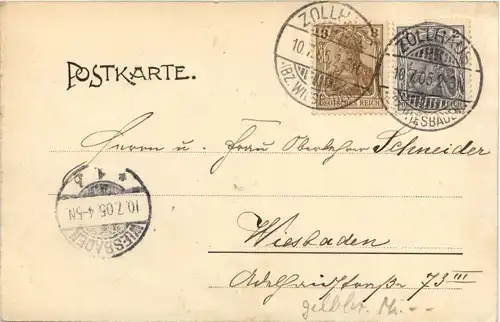 ZOLLHAUS
10.7.05
(BZ. WIESBADEN)
3 3
DEUTSCHES REICH
ZOLLHAUS
10.7.05
WIESBADEN
POSTKARTE.
Herrn u. Frau Oberlehrer Schneider
* 1. b
10.7.05. 4-5N
WIESBADEN
Wiesbaden
Adelheidstraße 73 III